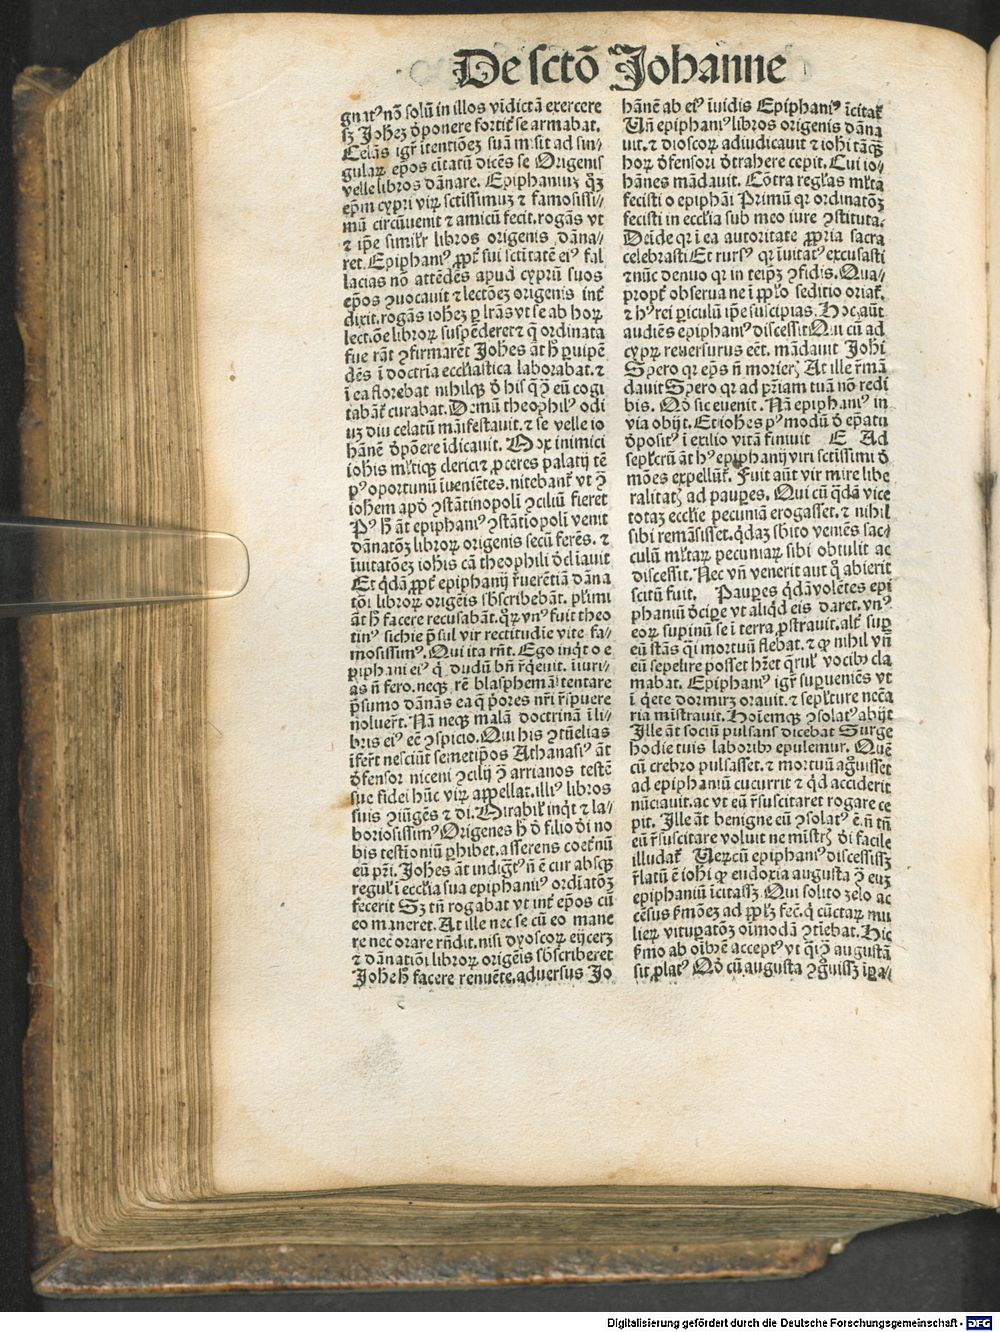 De sctō Johanne
gnatꝰ nō solū in illos vīdictā exercere
sꝫ Joheꝫ ꝺponere fortit̉ se armabat.
Celās igr̄ ītentiōeꝫ suā misit ad sin-
gularꝝ ep̄os cītatū dicēs se Origenis
velle libros dānare. Epiphaniuꝫ qꝫ
ep̄m cypri virꝝ sctissimuꝫ ⁊ famosissi-
mū circūuenit ⁊ amicū fecit. rogās vt
⁊ ip̄e simil̉r libros origenis dāna-
ret. Epiphaniꝰ ꝓpt̉ sui sctitatē eiꝰ fal
lacias nō attēdēs apud cyprū suos
ep̄os ꝯuocauit ⁊ lectōeꝫ origenis int̉
dixit. rogās ioheꝫ ꝑ lr̄as vt se ab horꝝ
lect.ōe librorꝝ suspēderet ⁊ q̄ ordinata
fue rāt ꝯfirmarēt Johēs āt h̄ ꝑuipē
dēs ī doctria eccl̉iastica laborabat. ⁊
ī ea florebat nihilqꝫ ꝺ̉ his q̄ ꝯ̄ eū cogi
tabāt̉ curabat. Demū theophilꝰ odi
uꝫ diu celatū māifestauit. ⁊ se velle io
hānē ꝺpōere īdicauit. Mox inimici
iohīs ml̉tiqꝫ clerici ⁊ ꝓceres palatij tē
pꝰ oportunū īueniētes. nitebant̉ vt ꝯ̄
iohem apꝺ̉ ꝯstātinopolī ꝯciliū fieret
Pꝰ h̄ āt epiphaniꝰ ꝯstātiopolī venit
dānatōꝫ librorꝝ origenis secū ferēs. ⁊
īuitatōeꝫ iohīs cā theophili ꝺclīauit
Et qdā ꝓpt̉ epiphanij r̄uerētiā dāna
tōi librorꝝ origēis sb̄scribebāt. pl̉imi
āt h̄ facere recusabāt. qrꝝ vnꝰ fuit theo
tinꝰ sichie p̄sul vir rectitudīe vite fa-
mosissimꝰ. Qui ita rn̄t. Ego inqt o e
piphani eiꝰ q̉ dudū bn̄ r̄qeuit. iniuri-
as n̄ fero. neqꝫ rē blasphemā tentare
p̄sumo dānās ea q̄ p̄ores nr̄i r̄spuere
noluer̄t. Nā neqꝫ malā doctrinā ī li-
bris eiꝰ eē ꝯspicio. Qui his ꝯtūelias
īfer̄t nesciūt semetip̄os Athanasiꝰ āt
ꝺfensor niceni ꝯcilij ꝯ̄ arrianos testē
sue fidei hūc virꝝ appellat. illiꝰ libros
suis ꝯiūgēs ⁊ di. Mirabil̉ inqt ⁊ la-
boriosissimꝰ Origenes h̄ ꝺ̉ filio ꝺi no
bis testīoniū ꝑhibet. asserens coet̉nū
eū pr̄i. Johes āt indigt̉ꝰ n̄ ē cur absqꝫ
regul̉ ī eccl̉ia sua epiphaniꝰ ordīatōꝫ
fecerit Sꝫ tn̄ rogabat vt int̉ ep̄os cū
eo maneret. At ille nec se cū eo mane
re nec orare rn̄dit. nisi dyoscorꝝ eijceꝫ
⁊ dānatiōi librorꝝ origēis sb̄scriberet
Johēs h̄ facere renuēte. aduersus Jo
hānē ab eiꝰ īuidis Epiphaniꝰ īcitat̉
Vn̄ epiphaniꝰ libros origenis dāna
uit. ⁊ dioscorꝝ adiudicauit ⁊ iohī tāqꝫ
horꝝ ꝺfensori ꝺtrahere cepit. Cui io-
hānes mādauit. Cōtra regl̉as ml̉ta
fecisti o epiphāi Primū qr ordinatōꝫ
fecisti in eccl̉ia sub meo iure ꝯstituta.
Deīde qr ī ea autoritate ꝓpria sacra
celebrasti Et rursꝰ qr īuitatꝰ excusasti
⁊ nūc denuo qr in teip̄ꝫ ꝯfidis. Qua-
propt̉ obserua ne ī ꝓpl̉o seditio oriat̉.
⁊ hꝰ rei ꝑiculū ip̄e suscipias. Hoc aūt
audiēs epiphaniꝰ discessit Qui cū ad
cyprꝝ reuersurus eēt. mādauit Johī
Spero qr ep̄s n̄ morierꝫ At ille r̄mā
dauit Spero qr ad pr̄iam tuā nō redi
bis. Qd̓ sic euenit. Nā epiphaniꝰ in
via obijt. Et iohes pꝰmodū ꝺ ep̄atu
ꝺpositꝰ ī exilio vitā finiuit E Ad
sepl̉crū āt hꝰ epiphanij viri sctissimi ꝺ̉
mōes expellūt̉. Fuit aūt vir mire libe
ralitatꝫ ad pauꝑes. Qui cū qdā vice
totaꝫ eccl̉ie pecuniā erogasset. ⁊ nihil
sibi remāsisset. qdaꝫ sb̄ito veniēs sac-
culū ml̉tarꝝ pecuniarꝝ sibi obtulit ac
discessit. Nec vn̄ venerit aut q̉ abierit
scitū fuit. Pauꝑes qdā volētes epi
phaniū ꝺciꝑe vt aliqd eis daret. vnꝰ
eorꝝ supinū se ī terra ꝓstrauit. alt̉ suꝑ
eū stās qi mortuū flebat. ⁊ ꝙ nihil vn̄
eū sepelire posset hr̄et qrul̉ vocibꝰ cla
mabat. Epiphaniꝰ igr̄ suꝑueniēs vt
ī qete dormirꝫ orauit. ⁊ sepl̉ture neca
ria mīstrauit. Hoīemqꝫ ꝯsolatꝰ abijt
Ille āt sociū pulsans dicebat Surge
hodie tuis laboribꝰ epulemur. Quē
cū crebro pulsasset. ⁊ mortuū agͦuisset
ad epiphaniū cucurrit ⁊ qd acciderit
nūciauit. ac vt eū r̄suscitaret rogare ce
pit. Ille āt benigne eū ꝯsolatꝰ ē. n̄ tn̄
eū r̄suscitare voluit ne mīstrꝫ ꝺi facile
illudat̉ Verꝝ cū epiphaniꝰ discessissꝫ
r̄latū ē iohī ꝙ eudoxia augusta ꝯ̄ euꝫ
epiphaniū īcitassꝫ. Qui solito zelo ac
cēsus ẜmōeꝫ ad ꝓpl̉ꝫ fec̄. q̄ cūctarꝝ mu
lierꝝ vituꝑatōꝫ oīmodā ꝯtīebat. Hic
ẜmo ab oībꝰ ē acceptꝰ vt qi ꝯ̄ augustā
sit ꝓlatꝰ Qd̓ cū augusta ꝯgͦuissꝫ īꝑa-
Digitalisierung gefördert durch die Deutsche Forschungsgemeinschaft - DFG